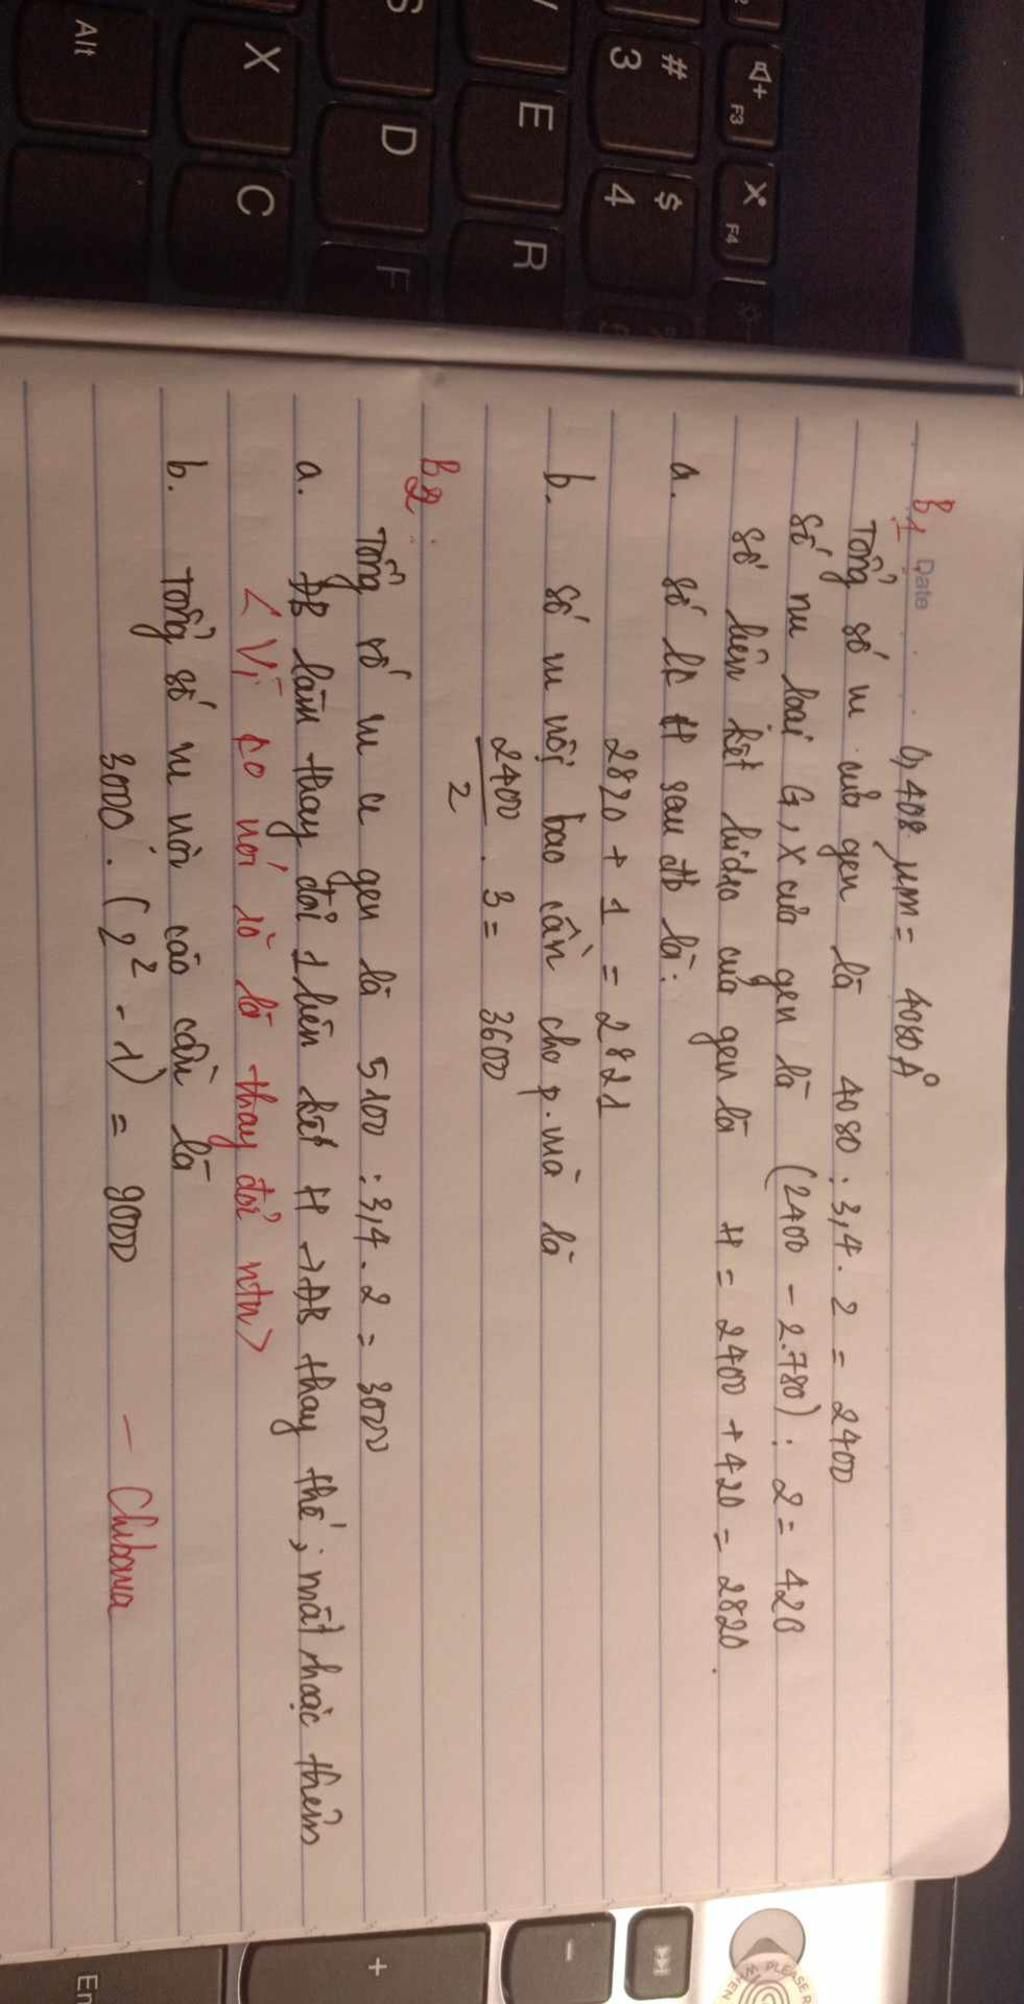 B1 Date 0,408 µm = 4080 A°
Tổng số nu của gen là 4080 : 3,4 . 2 = 2400
số nu loại G, X của gen là (2400 - 2.780) : 2 = 420
số liên kết hidro của gen là H = 2400 + 420 = 2820.
a. số lk H sau đb là:
2820 + 1 = 2821
b. số nu nội bào cần cho p.mã là
2400/2 . 3 = 3600
B2:
Tổng số nu của gen là 5100 : 3,4 . 2 = 3000
a. ĐB làm thay đổi 1 liên kết H → ĐB thay thế ; mất hoặc thêm
< Vì ko nói rõ là thay đổi ntn >
b. Tổng số nu môi cần là
3000 . (2² - 1) = 9000
- Chibana
Alt
X
C
S
D
F
E
R
#
3
$
4
F3
X
F4
+
-
En
PLEASE R